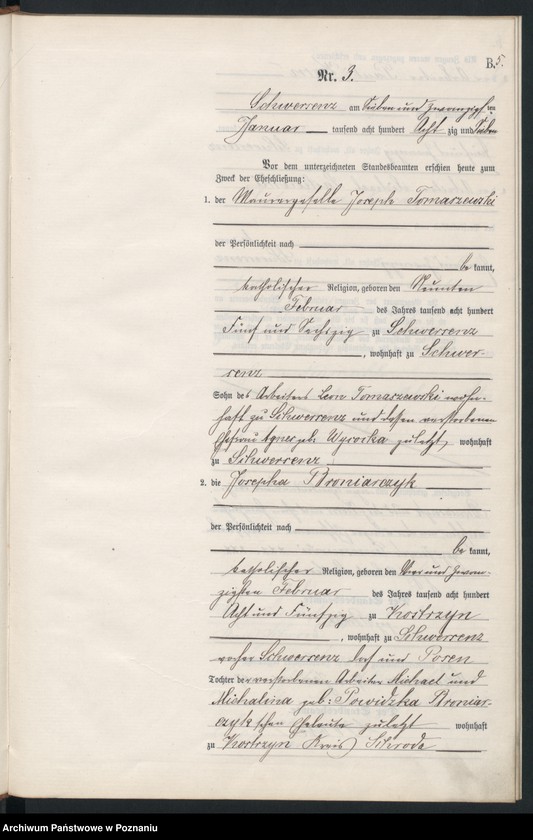 B. 5.
Nr. 3.
Schwersenz am Sieben und zwanzigsten
Januar tausend acht hundert Acht zig und Sieben
Vor dem unterzeichneten Standesbeamten erschien heute zum
Zweck der Eheschließung:
1. der Maurergeselle Joseph Tomaszewski
der Persönlichkeit nach
be kannt,
katholischer Religion, geboren den Neunten
Februar des Jahres tausend acht hundert
Fünf und Sechszig zu Schwersenz
, wohnhaft zu Schwer-
senz
Sohn des Arbeiters Leon Tomaszewski wohn-
haft zu Schwersenz und dessen verstorbenen
Ehefrau Agnes geb. Wyrocka zuletzt, wohnhaft
zu Schwersenz
2. die Josepha Broniarczyk
der Persönlichkeit nach
be kannt,
katholischer Religion, geboren den Vier und zwan-
zigsten Februar des Jahres tausend acht hundert
Acht und Fünfzig zu Kostrzyn
, wohnhaft zu Schwersenz
vorher Schwersenz Dorf und Posen
Tochter der verstorbenen Arbeiter Michael und
Michalina geb: Powidzka Broniar-
czyk'schen Eheleute zuletzt wohnhaft
zu Kostrzyn Kreis Schroda
Archiwum Państwowe w Poznaniu